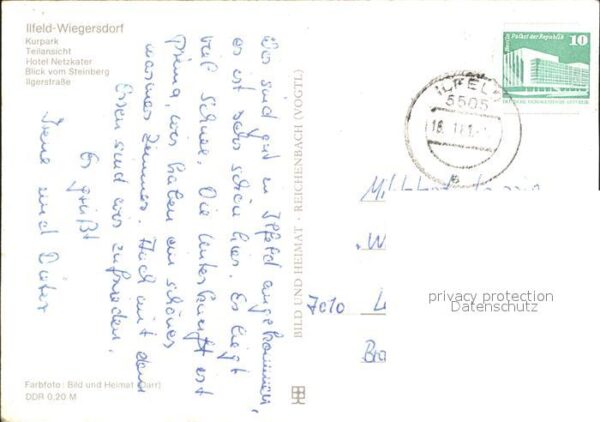 Ilfeld-Wiegersdorf
Kurpark
Teilansicht
Hotel Netzkater
Blick vom Steinberg
Ilgerstraße
Wir sind gut in Ilfeld angekommen,
es ist sehr schön hier. Es liegt
viel Schnee. Die Unterkunft ist
prima, wir haben ein schönes
warmes Zimmer. Auch mit dem
Essen sind wir zufrieden.
Es grüßt
Irene und Dieter
Farbfoto: Bild und Heimat (Darr)
DDR 0,20 M
BILD UND HEIMAT · REICHENBACH (VOGTL)
Berlin, Palast der Republik
10
DEUTSCHE DEMOKRATISCHE REPUBLIK
ILFELD
5505
7010
privacy protection
Datenschutz